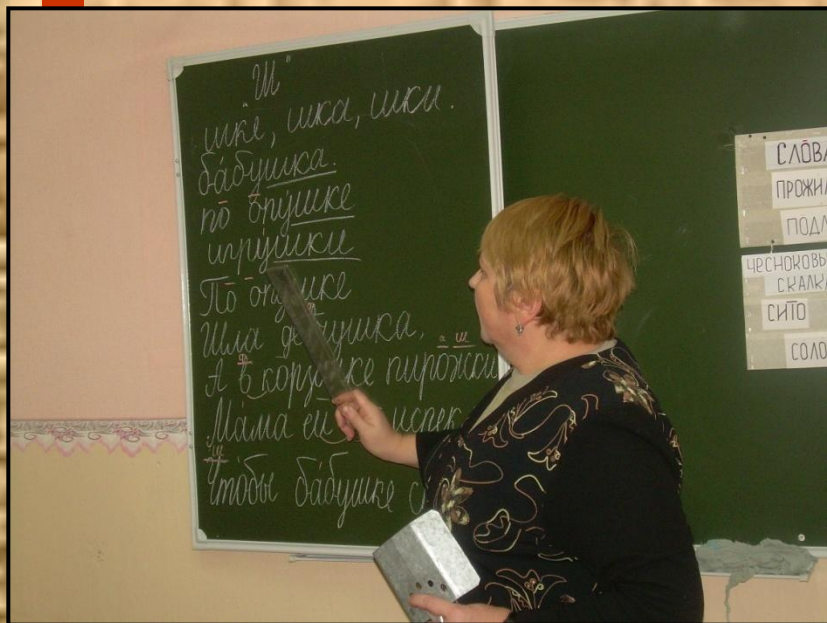 "Ш"
шке, шка, шки.
ба́бушка.
по опу́шке
игру́шки
По опушке
Шла де́вушка,
А в корзинке пирожки
Ма́ма ей испек
Что́бы ба́бушке
СЛОВА
ПРОЖИ
ПОДЛ
ЧЕСНОКОВ
СКАЛК
СИТО
СОЛО